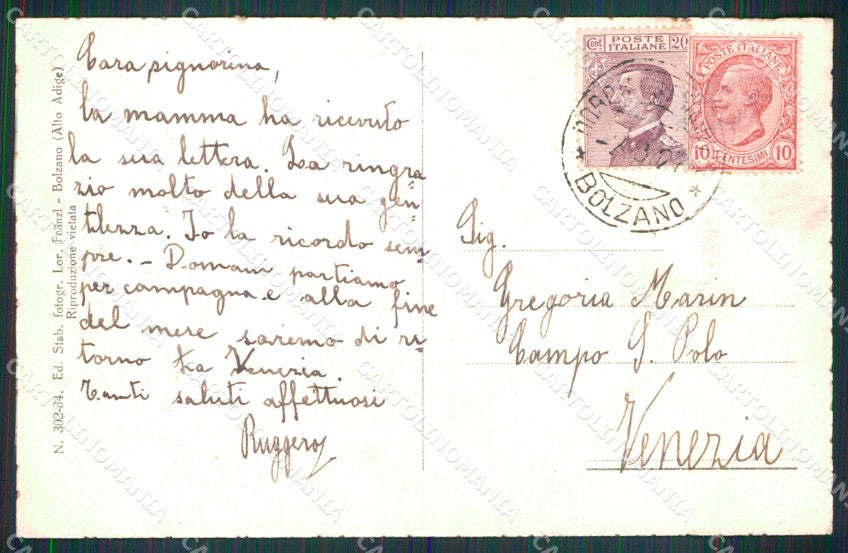 Cara signorina,
la mamma ha ricevuto
la sua lettera. La ringra
zio molto della sua gen-
tilezza. Io la ricordo sem-
pre. - Domani partiamo
per campagna e alla fine
del mese saremo di ri-
torno ta Venezia.
Tanti saluti affettuosi
Ruggero
N. 302-34. Ed. Stab. fotogr. Lor. Fränzl - Bolzano (Alto Adige)
Riproduzione vietata
Cent. POSTE 20
ITALIANE
POSTE ITALIANE
10 CENTESIMI 10
BOLZANO
Sig.
Gregoria Marin
Campo S. Polo
Venezia
CARTOLINOMANIA